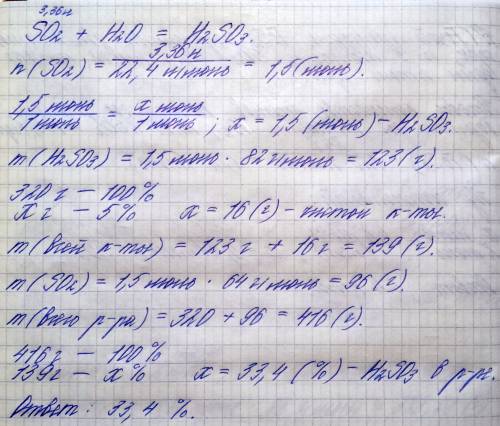 3,36л
SO2 + H2O = H2SO3.
n(SO2) = 3,36л / 22,4 л/моль = 1,5(моль).
1,5 моль / 1 моль = x моль / 1 моль ; x = 1,5 (моль) - H2SO3.
m(H2SO3) = 1,5 моль · 82 г/моль = 123(г).
320 г — 100%
X г — 5% x = 16(г) - чистой к-ты.
m(всей к-ты) = 123 г + 16 г = 139(г).
m(SO2) = 1,5 моль · 64 г/моль = 96(г).
m(всего р-ра) = 320 + 96 = 416(г).
416 г — 100%
139г — x% x = 33,4 (%) - H2SO3 в р-ре.
Ответ: 33,4 %.